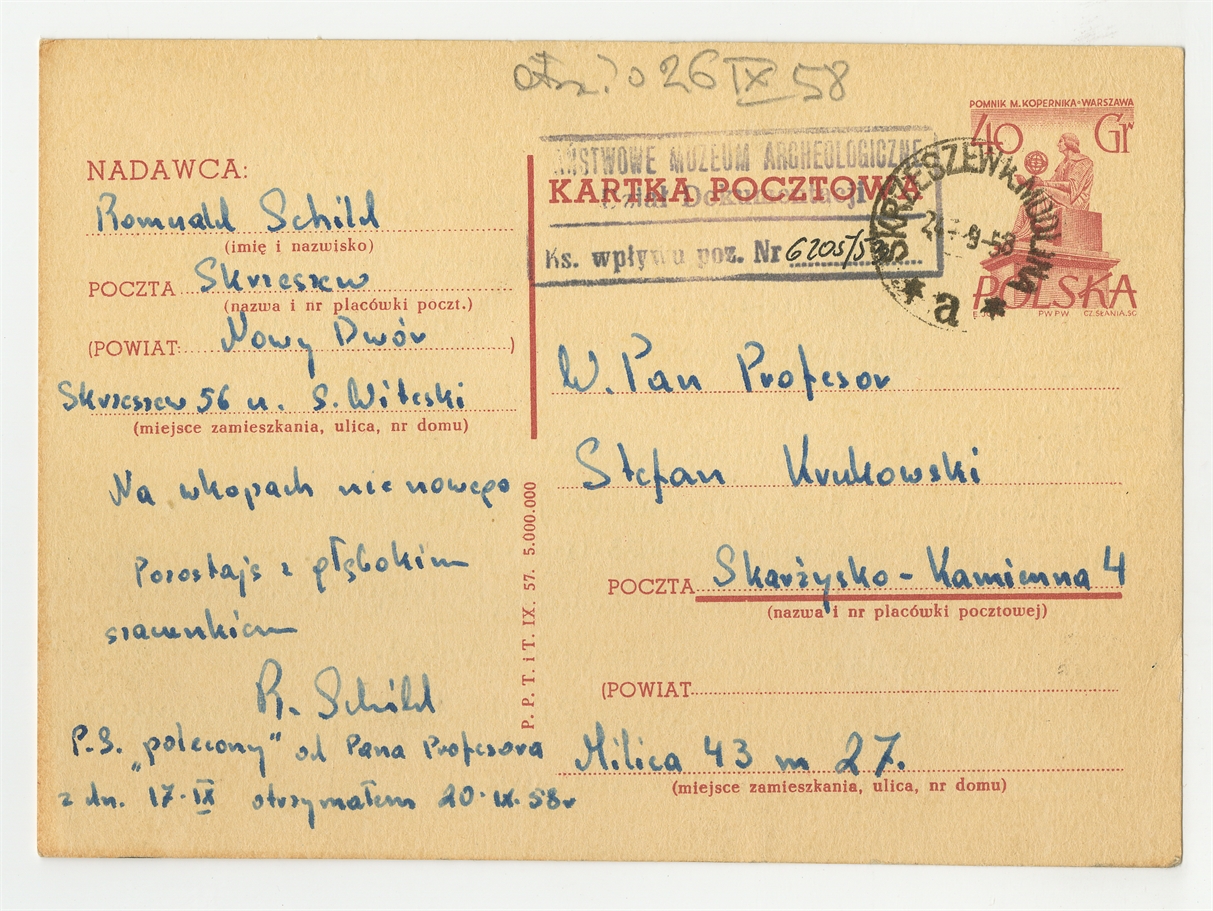 otrz. 26 IX 58
POMNIK M. KOPERNIKA • WARSZAWA
40 Gr
POLSKA
PWPW CZ.SŁANIA.SC
PAŃSTWOWE MUZEUM ARCHEOLOGICZNE
Dział Dokumentacji
Ks. wpływu poz. Nr 6205/5
SKRZESZEW K.MODLINA
-9-58
* a *
KARTKA POCZTOWA
NADAWCA:
Romuald Schild
(imię i nazwisko)
POCZTA Skrzeszew
(nazwa i nr placówki poczt.)
(POWIAT: Nowy Dwór )
Skrzeszew 56 u. S. Witeski
(miejsce zamieszkania, ulica, nr domu)
Na wkopach nic nowego
Pozostaję z głębokim
szacunkiem
R. Schild
P.S. „polecony" od Pana Profesora
z dn. 17.IX otrzymałem 20.IX.58r
P. P. T. i T. IX. 57. 5.000.000
W. Pan Profesor
Stefan Krukowski
POCZTA Skarżysko-Kamienna 4
(nazwa i nr placówki pocztowej)
(POWIAT
Milica 43 m 27.
(miejsce zamieszkania, ulica, nr domu)